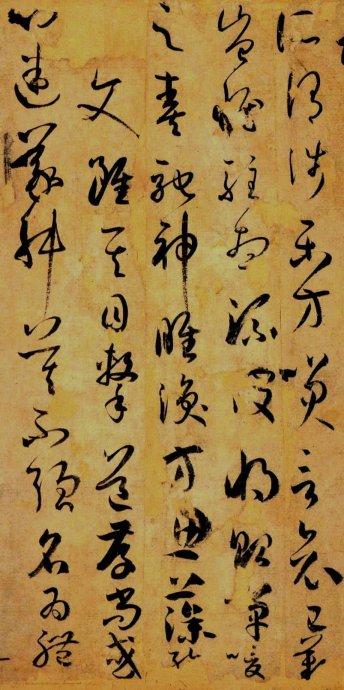 所謂涉樂方笑言哀已歎
豈惟駐想流波將貽嘽噯
之奏馳神睢渙方思藻繪
文雖其目擊道存尚或
心迷議舛莫不強名為體